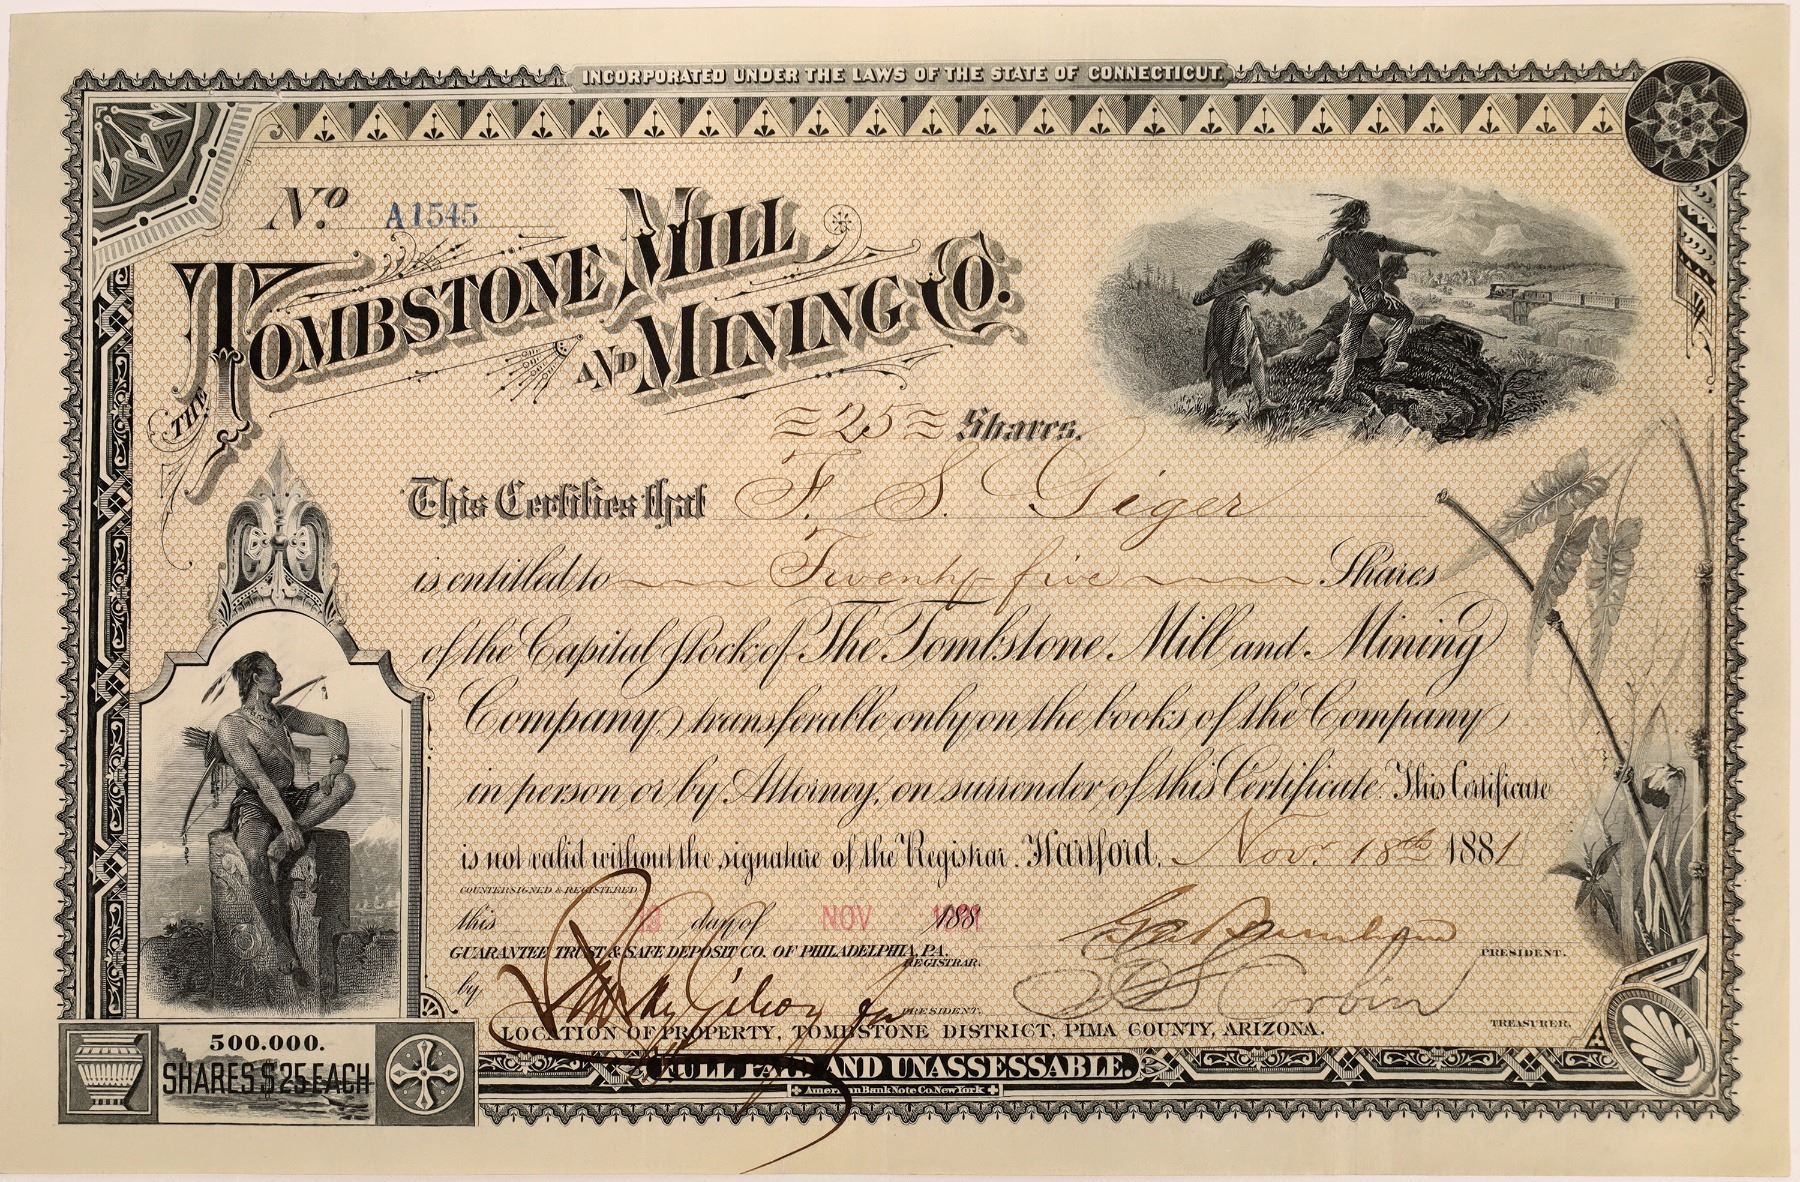 INCORPORATED UNDER THE LAWS OF THE STATE OF CONNECTICUT.
No. A1545
THE TOMBSTONE MILL
AND MINING CO.
= 25 = Shares.
This Certifies that F. S. Giger
is entitled to Twenty five Shares
of the Capital Stock of The Tombstone Mill and Mining
Company, transferable only on the books of the Company
in person or by Attorney, on surrender of this Certificate. This Certificate
is not valid without the signature of the Registrar. Hartford, Nov. 18th 1881
COUNTERSIGNED & REGISTERED
this 19 day of NOV 1881
GUARANTEE TRUST & SAFE DEPOSIT CO. OF PHILADELPHIA, PA.
REGISTRAR.
PRESIDENT.
by
PRESIDENT.
Corbin
TREASURER.
LOCATION OF PROPERTY, TOMBSTONE DISTRICT, PIMA COUNTY, ARIZONA.
500.000.
SHARES $25 EACH
FULL PAID AND UNASSESSABLE.
American Bank Note Co. New York